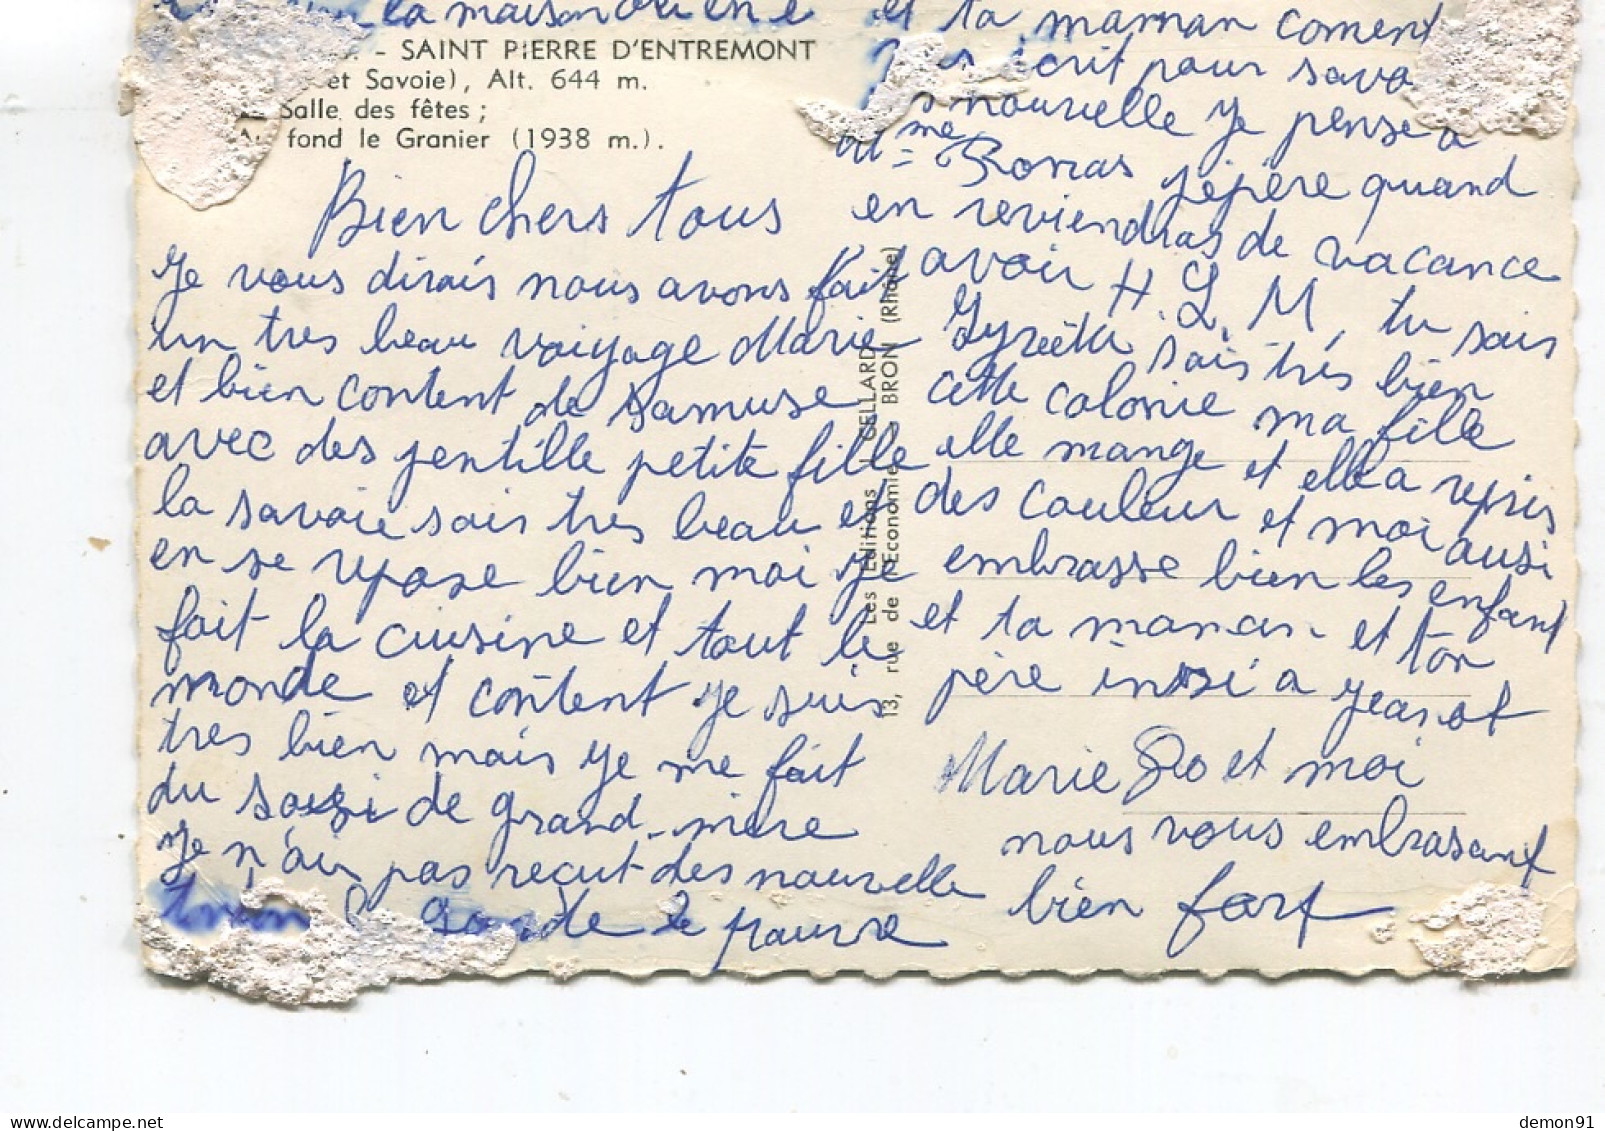 la maison
- SAINT PIERRE D'ENTREMONT
et Savoie), Alt. 644 m.
Salle des fêtes ;
Au fond le Granier (1938 m.).
Bien chers tous
Je vous dirais nous avons fait
un tres beau voiyage Marie
et bien content de samuse
avec des jentille petite fille
la savoie sais tres beau et
en se repose bien moi je
fait la cuisine et tout le
monde et content je suis
tres bien mais je me fait
du sousi de grand-mere
Je n'ai pas recut des nouvelle
garde le pauvre
Les Editions J. CELLARD
13, rue de l'Economie - BRON (Rhône)
et ta maman coment
écrit pour savo
nouvelle je pense a
me Romas jépère quand
en reviendras de vacance
avoir H.L.M, tu sais
sais très bien
cette colonie ma fille
elle mange et elle a repris
des couleur et moi ausi
embrasse bien les enfant
et ta maman et ton
père insi a jeanot
Marie Jo et moi
nous vous embrasant
bien fort
demon91